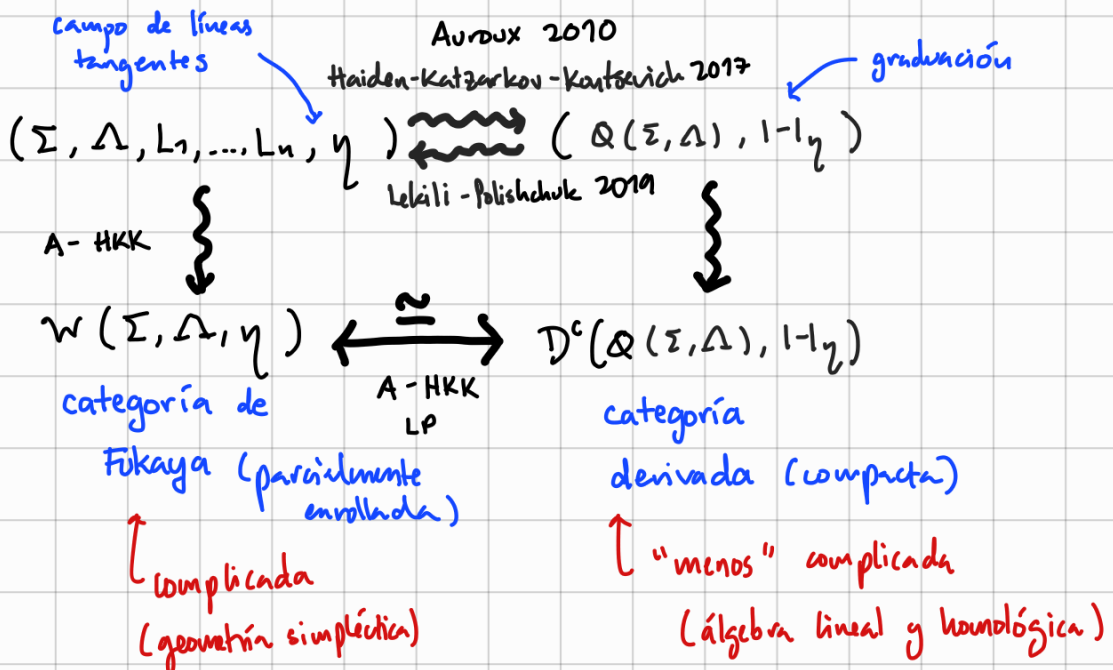 campo de líneas
tangentes
Auroux 2010
Haiden-Katzarkov-Kontsevich 2017
graduación
(Σ, Λ, L₁, ..., Lₙ, η) ⇝ ⇜ (Q(Σ,Λ), |-|η)
Lekili-Polishchuk 2019
A-HKK
W(Σ, Λ, η) ≅ ⟷ Dᶜ(Q(Σ,Λ), |-|η)
A-HKK
LP
categoría de
Fukaya (parcialmente
enrollada)
categoría
derivada (compacta)
complicada
(geometría simpléctica)
"menos" complicada
(álgebra lineal y homológica)